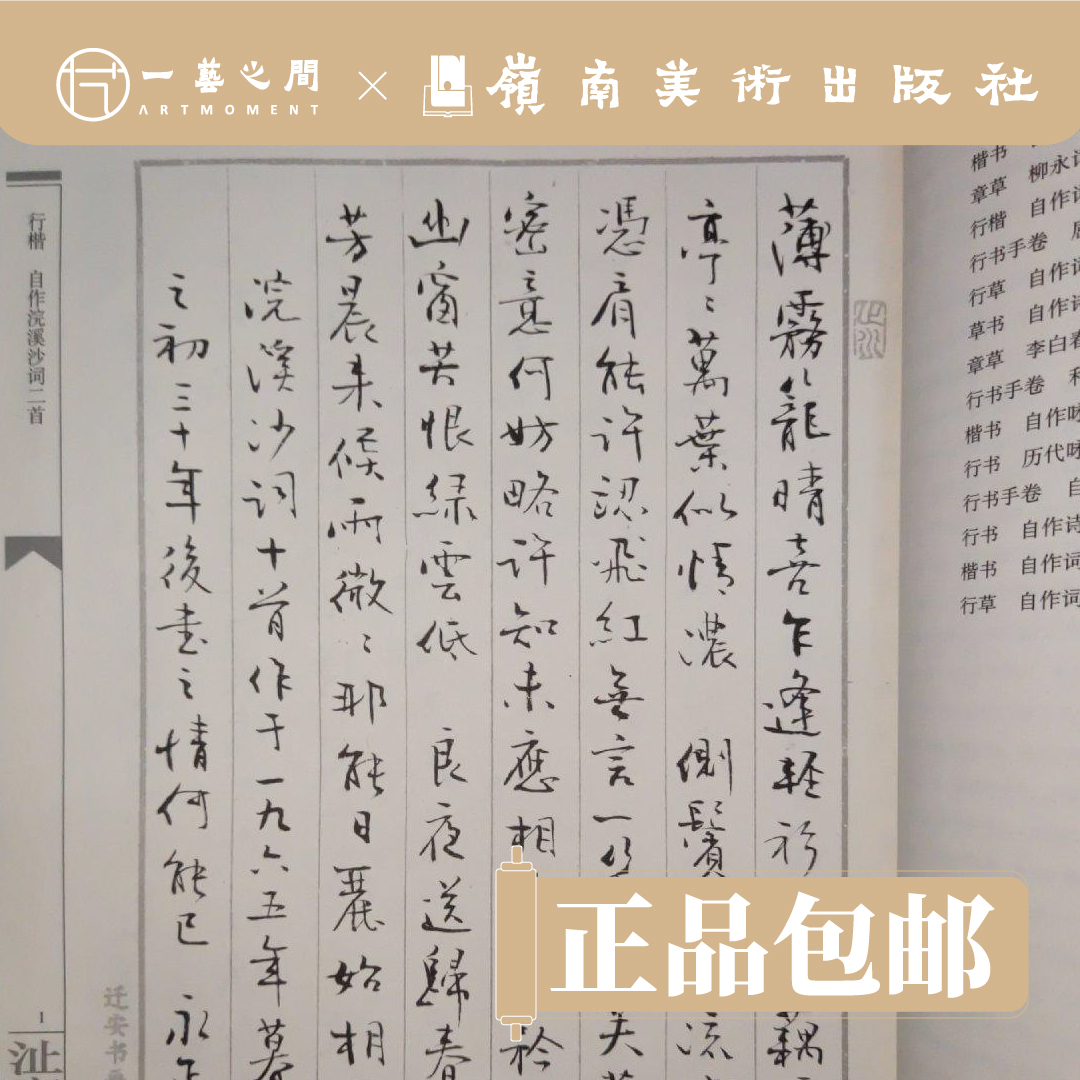 一藝之間
ARTMOMENT
嶺南美術出版社
薄霧籠晴喜乍逢輕衫
藕
亭〻萬葉似情濃 側鬢
流
憑肩能許認飛紅無言一
笑
密意何妨略許知未應相
衿
幽窗苦恨綠雲低 良夜送歸春
芳晨來候雨微〻耶能日麗始相
浣溪沙词十首作于一九六五年暮
之初三十年後書之情何能已 永
行楷 自作浣溪沙词二首
1
迁安书
楷书
章草 柳永词
行楷 自作词
行书手卷
行草 自作词
草书 自作词
章草 李白春
行书手卷
楷书 自作咏
行书 历代咏
行书手卷 自
行书 自作诗
楷书 自作词
行草 自作词
正品包邮